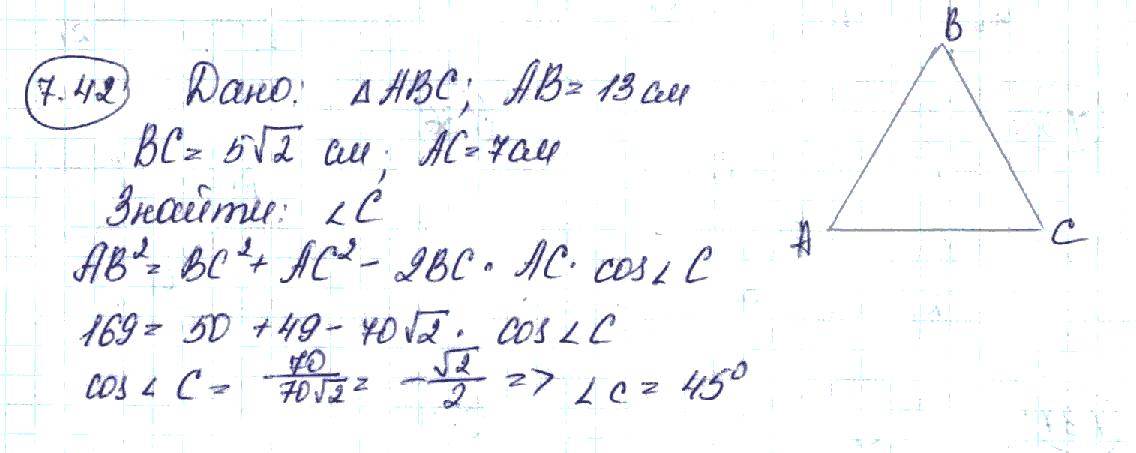 7.42 Дано: △ABC; AB = 13 см
BC = 5√2 см; AC = 7 см
Знайти: ∠C
AB² = BC² + AC² - 2BC · AC · cos∠C
169 = 50 + 49 - 70√2 · cos∠C
cos∠C = -70/70√2 = -√2/2 => ∠C = 45°
B
A
C